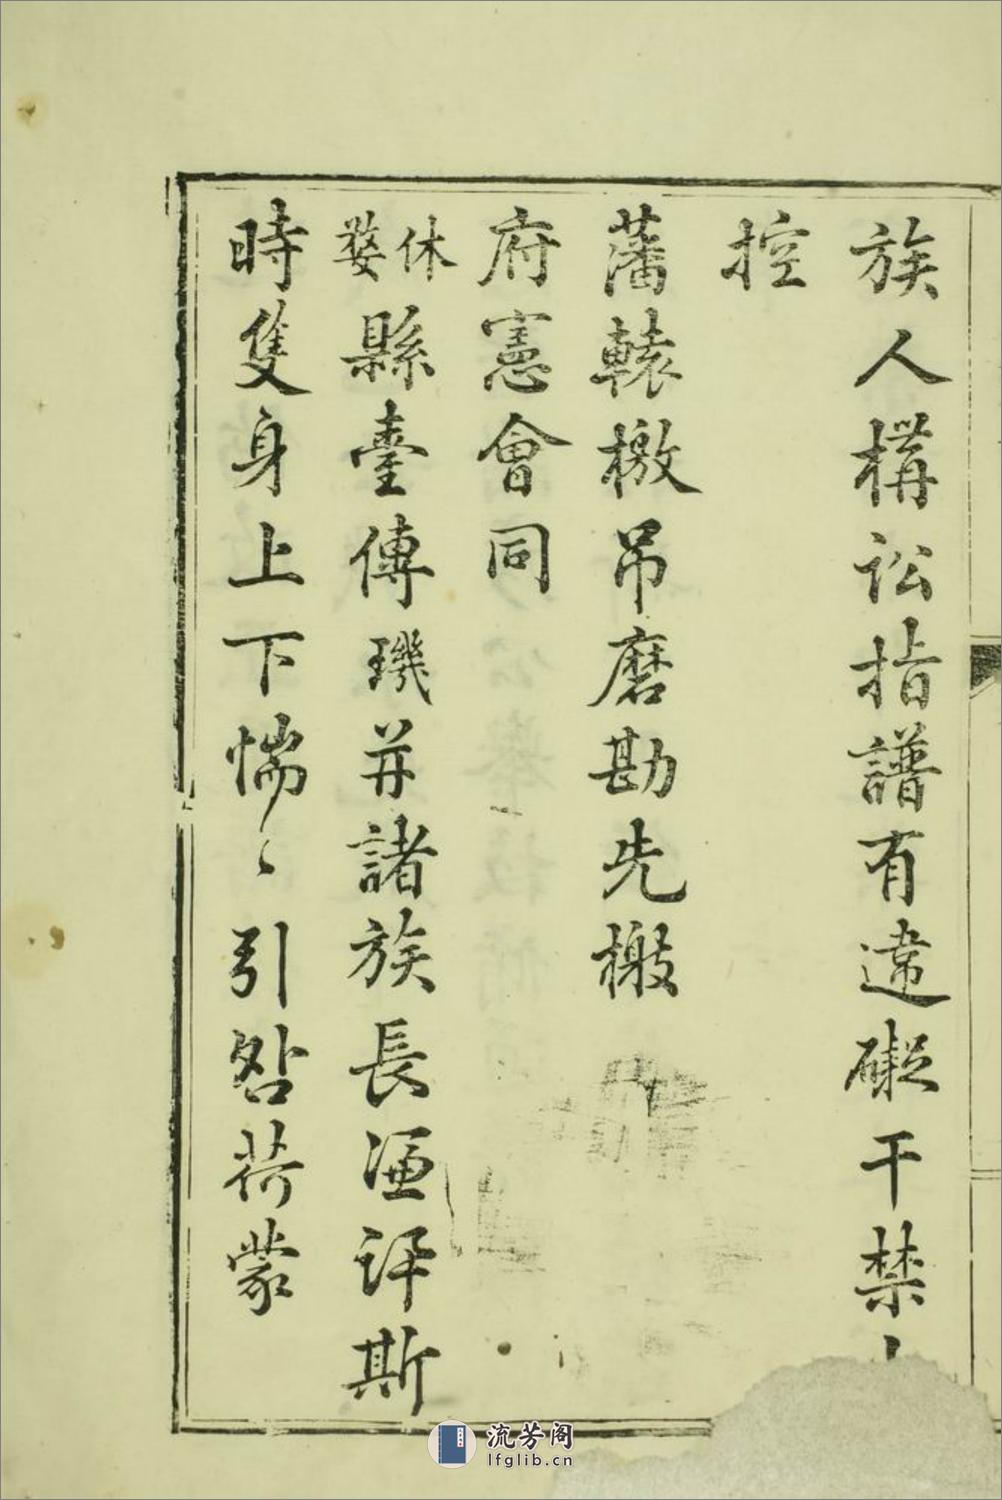 族人構訟指譜有違礙干禁
控
藩轅檄吊磨勘先檄
府憲會同
休婺縣臺傳璣并諸族長逐訊斯
時隻身上下惴〻引咎荷蒙
流芳阁
lfglib.cn